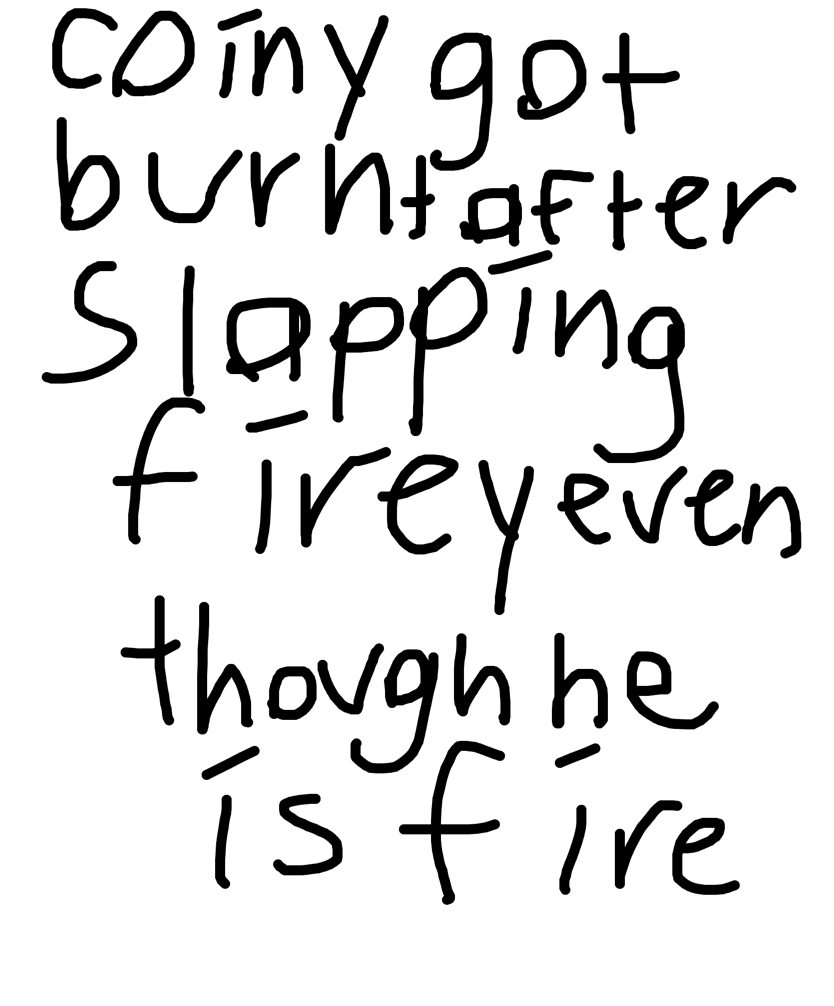 coiny got
burnt after
slapping
firey even
though he
is fire